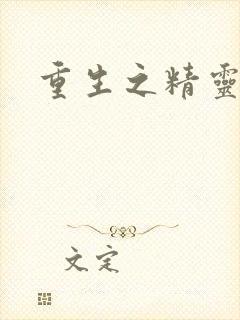 重生之精靈
文定